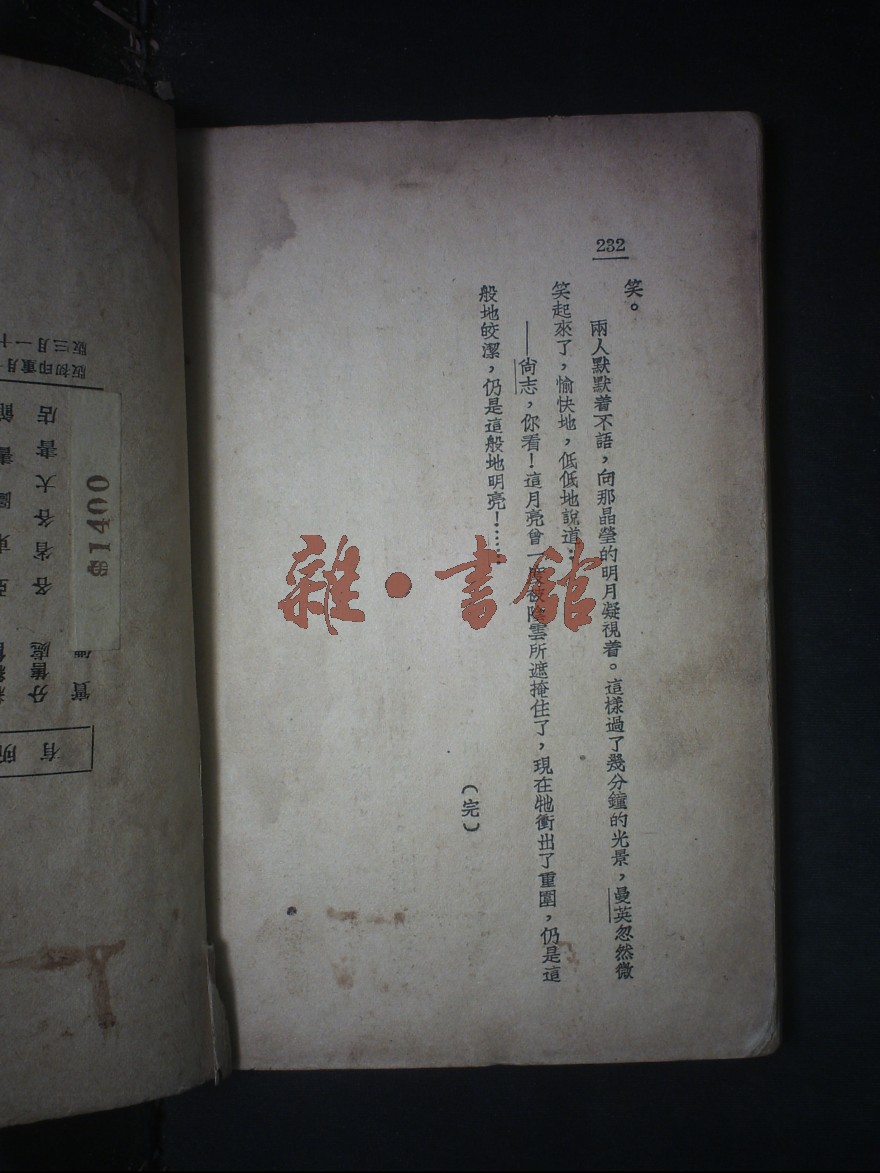 232
笑。
兩人默默着不語，向那晶瑩的明月凝視着。這樣過了幾分鐘的光景，曼英忽然微
笑起來了，愉快地，低低地說道：
——尙志，你看！這月亮曾一度被陰雲所遮掩住了，現在牠衝出了重圍，仍是這
般地皎潔，仍是這般地明亮！……
(完)
雜·書館
$1400
版三月一十
版初印重月
各省各大書店
分售處
實
有所